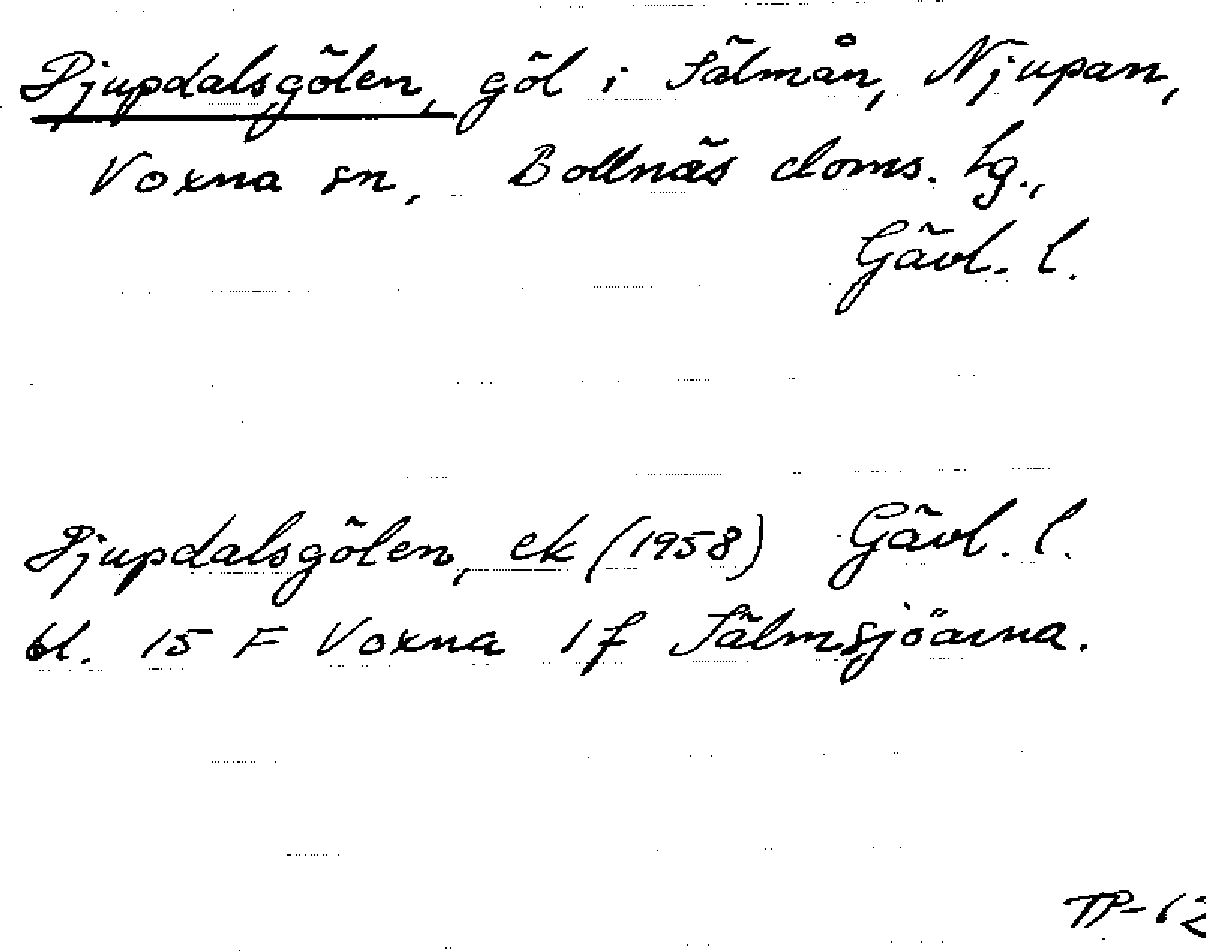 Djupdalsgölen, göl i Sälmån, Njupan,
Voxna sn, Bollnäs doms. hg.,
Gävl. l.
Djupdalsgölen, ek (1958) Gävl. l.
bl. 15 F Voxna 1f Sälmsjöarna.
TP-62